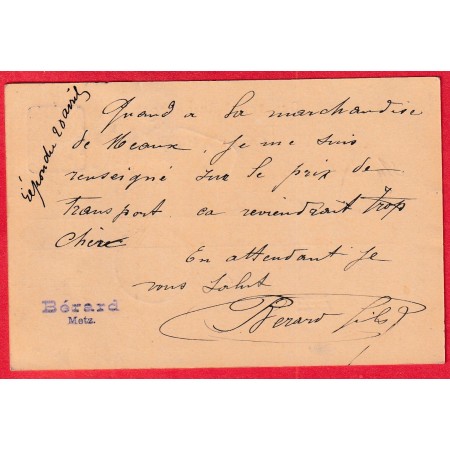 Répondu 20 avril
Quand a la marchandise
de Meaux, Je me suis
renseigné sur le prix de
transport ca reviendrait trop
chère
En attendant Je
vous salut
Bérard
Metz.
Berard fils